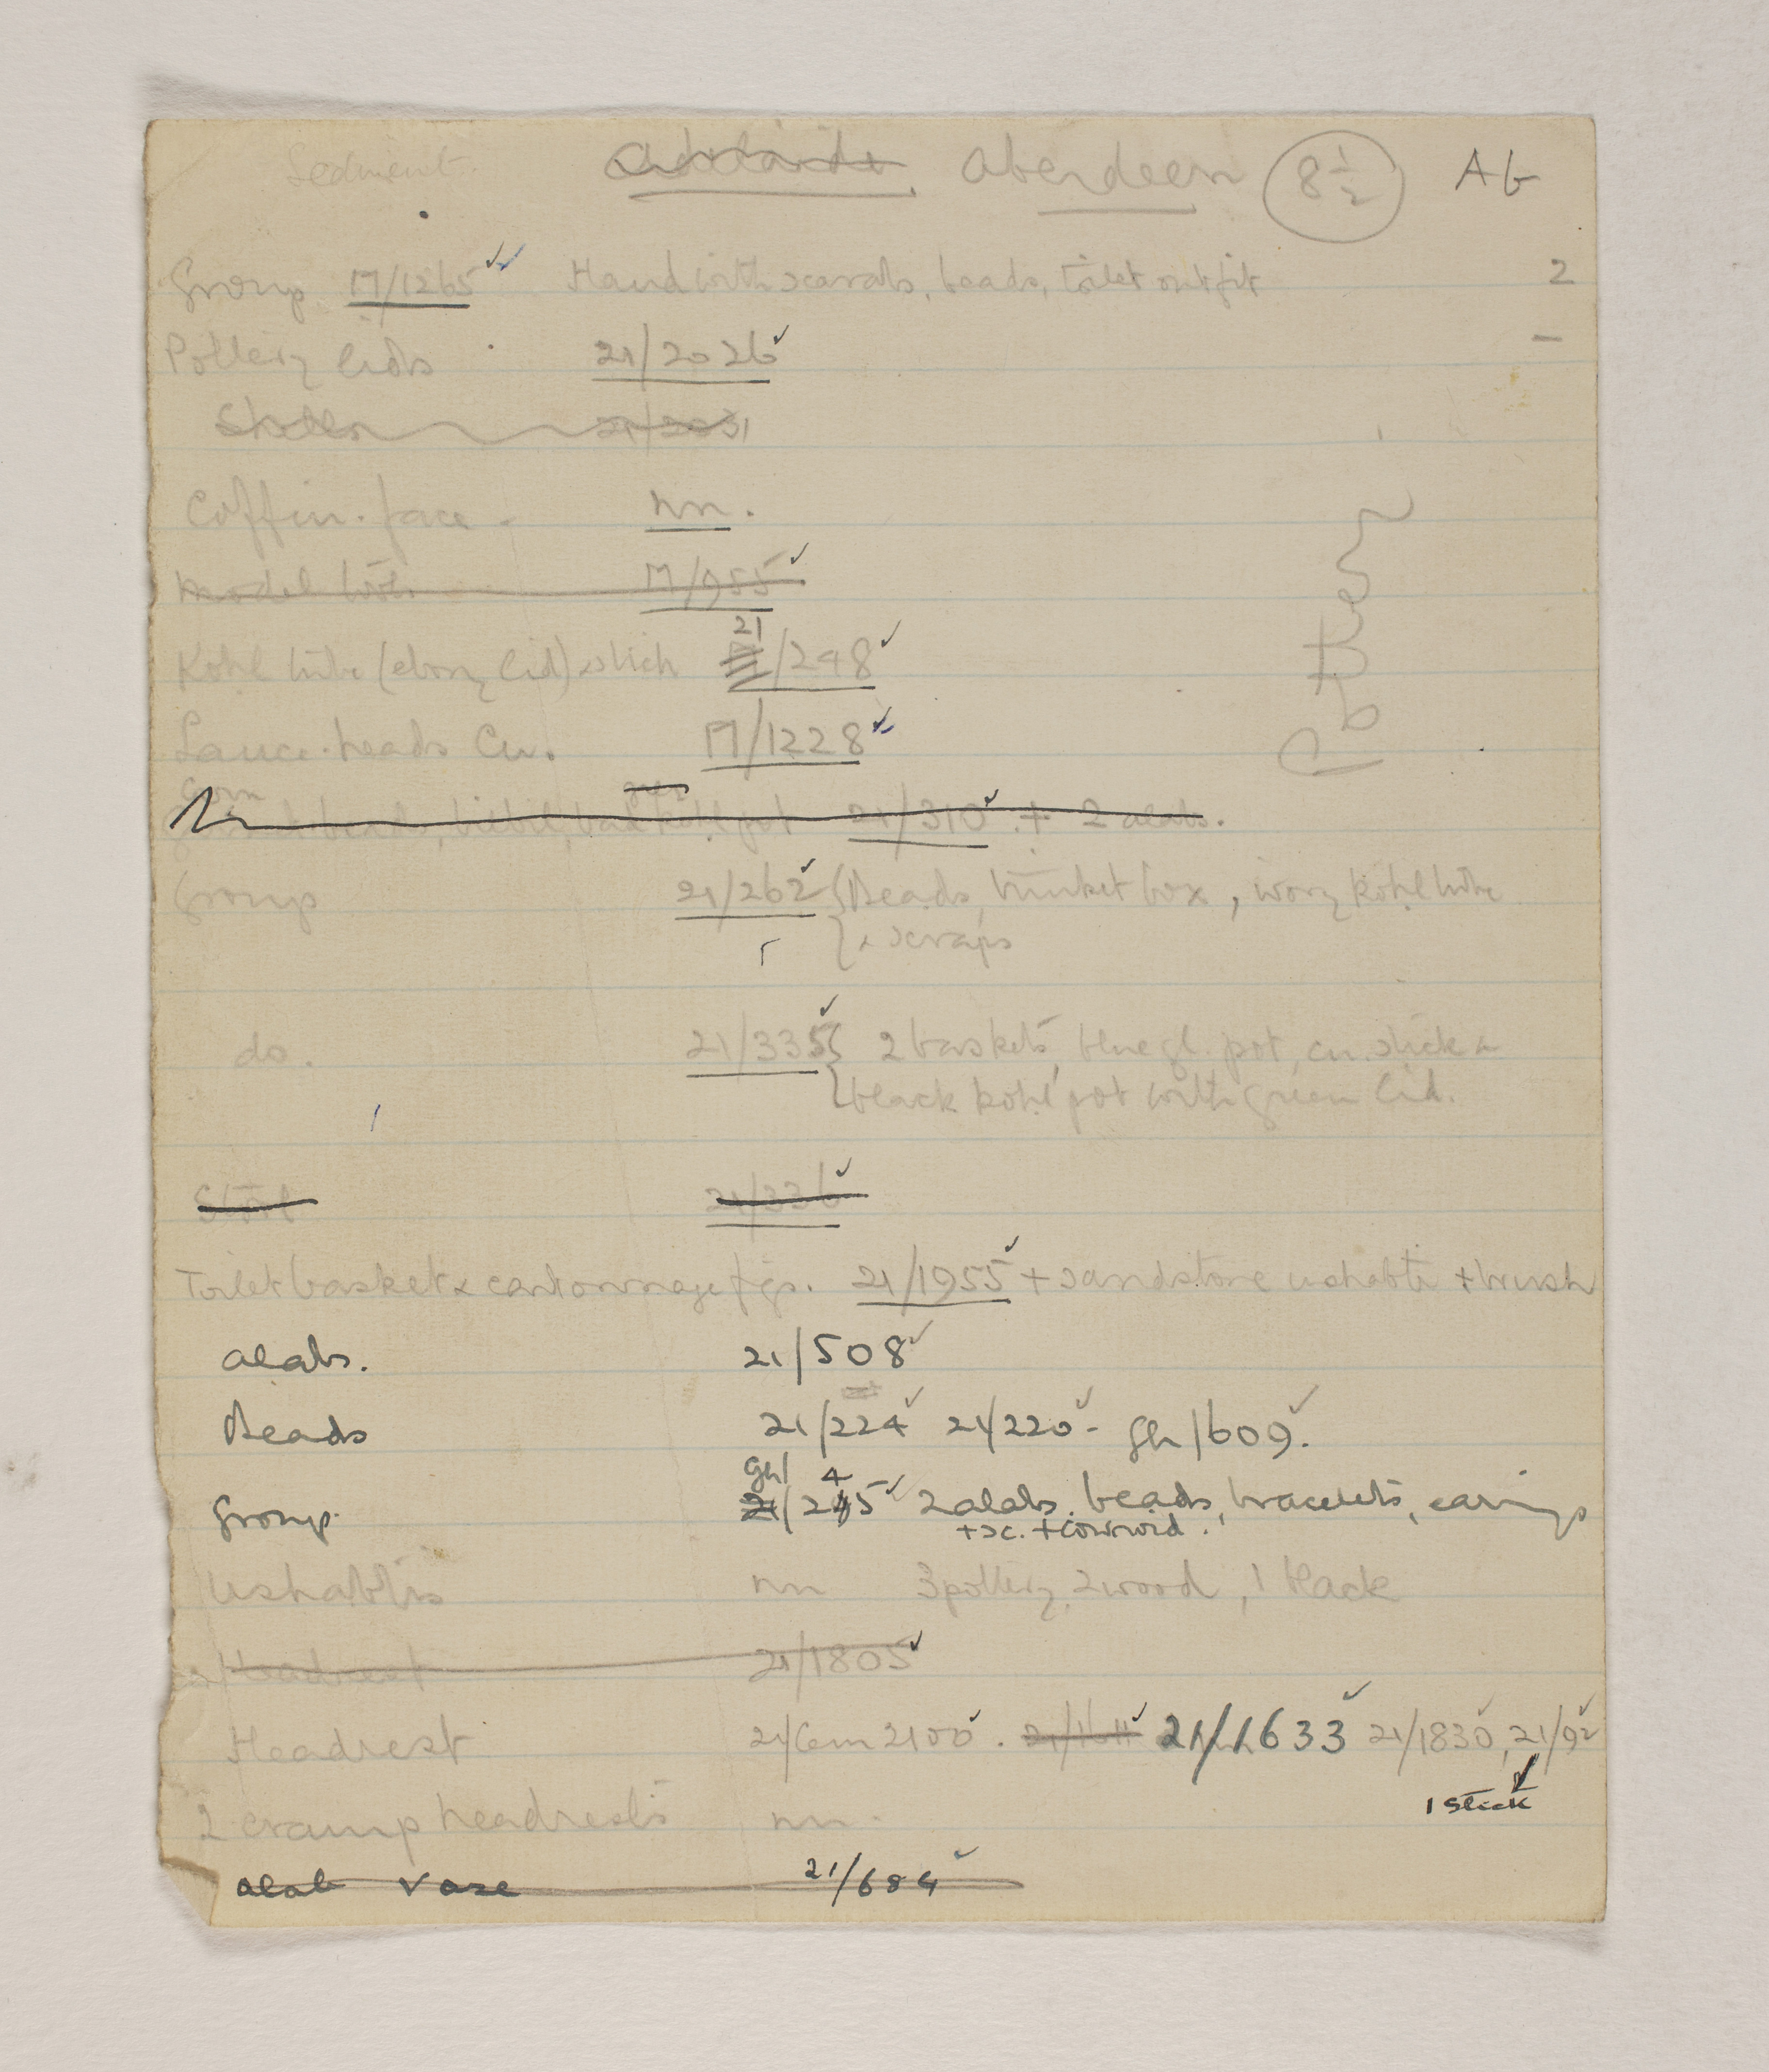 Sediment. Adelaide Aberdeen 8½ Ab
Group M/1265 Hand with scarab, beads, toilet outfit 2
Pottery lids 21/2026 –
Shells 21/2031
Coffin. face - nn.
Model tools M/955
21
Kohl tube (ebony lid) & stick /248
Lance. heads Cu. M/1228
21/310 + 2 alab.
Group 21/262 { Beads, trinket box, ivory kohl tube
& scraps
do. 21/335 { 2 baskets, blue gl. pot, cu. stick &
black kohl pot with green lid.
Stool 21/336
Toilet basket & cartonnage figs. 21/1955 + sandstone ushabti + brush
alab. 21/508
Beads 21/224 21/220 - gh/609.
gh/ 4
Group. 21/245 2 alab. beads, bracelets, earrings
+ sc. + cowroid.
Ushabtis nn 3 pottery, 2 wood, 1 black
Headrest 21/1805
Headrest 21/Cem 2100. 21/1611 21/1633 21/1830, 21/92
1 stick
2 cramp headrests nn.
alab vase 21/684